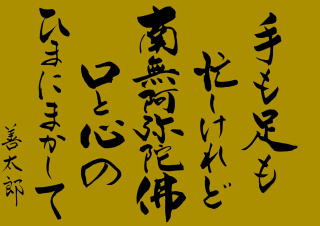 手も足も
忙しけれど
南無阿弥陀佛
口と心の
ひまにまかして
善太郎